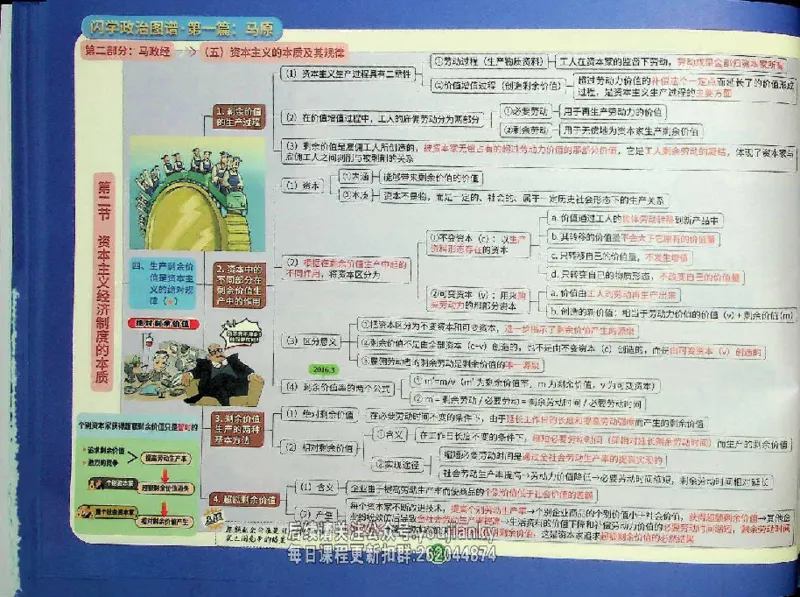 闪学政治图谱·第一篇：马原
第二部分：马政经 （五）资本主义的本质及其规律
第二节 资本主义经济制度的本质
四、生产剩余价值是资本主义的绝对规律（★）
1. 剩余价值的生产过程
（1）资本主义生产过程具有二重性
①劳动过程（生产物质资料）
工人在资本家的监督下劳动，劳动成果全部归资本家所有
②价值增值过程（创造剩余价值）
超过劳动力价值的补偿这个一定点而延长了的价值形成过程，是资本主义生产过程的主要方面
（2）在价值增值过程中，工人的雇佣劳动分为两部分
①必要劳动 用于再生产劳动力的价值
②剩余劳动 用于无偿地为资本家生产剩余价值
（3）剩余价值是雇佣工人所创造的，被资本家无偿占有的超过劳动力价值的那部分价值，它是工人剩余劳动的凝结，体现了资本家与
雇佣工人之间剥削与被剥削的关系
2. 资本中的不同部分在剩余价值生产中的作用
（1）资本
①内涵 能够带来剩余价值的价值
②本质 资本不是物，而是一定的、社会的、属于一定历史社会形态下的生产关系
（2）根据在剩余价值生产中起的不同作用，将资本区分为
①不变资本（c）：以生产资料形态存在的资本
a. 价值通过工人的具体劳动转移到新产品中
b. 其转移的价值量不会大于它原有的价值量
c. 只转移自己的价值量，不发生增值
d. 只转变自己的物质形态，不改变自己的价值量
②可变资本（v）：用来购买劳动力的那部分资本
a. 价值由工人的劳动再生产出来
b. 创造的新价值：相当于劳动力价值的价值（v）+剩余价值（m）
（3）区分意义
①把资本区分为不变资本和可变资本，进一步揭示了剩余价值产生的源泉
②剩余价值不是由全部资本（c+v）创造的，也不是由不变资本（c）创造的，而是由可变资本（v）创造的
③雇佣劳动者的剩余劳动是剩余价值的唯一源泉
2016.3
（4）剩余价值率的两个公式
① m'=m/v（m'为剩余价值率，m 为剩余价值，v 为可变资本）
② m'= 剩余劳动 / 必要劳动 = 剩余劳动时间 / 必要劳动时间
绝对剩余价值
3. 剩余价值生产的两种基本方法
（1）绝对剩余价值
在必要劳动时间不变的条件下，由于延长工作日的长度和提高劳动强度而产生的剩余价值
（2）相对剩余价值
①含义 在工作日长度不变的条件下，缩短必要劳动时间（即相对延长剩余劳动时间）而生产的剩余价值
②实现途径
缩短必要劳动时间是通过全社会劳动生产率的提高实现的
社会劳动生产率提高→劳动力价值降低→必要劳动时间缩短，剩余劳动时间相对延长
个别资本家获得超额剩余价值只是暂时的
追求剩余价值
激烈的竞争
提高劳动生产率
个别资本家
超额剩余价值消失
整个社会资本家
相对剩余价值产生
4. 超额剩余价值
（1）含义
企业由于提高劳动生产率而使商品的个别价值低于社会价值的差额
（2）产生
每个资本家不断改进技术，提高个别劳动生产率→个别企业商品的个别价值小于社会价值，获得超额剩余价值→其他企
后续请关注公众号youjianky
每日课程更新扣群:262044874